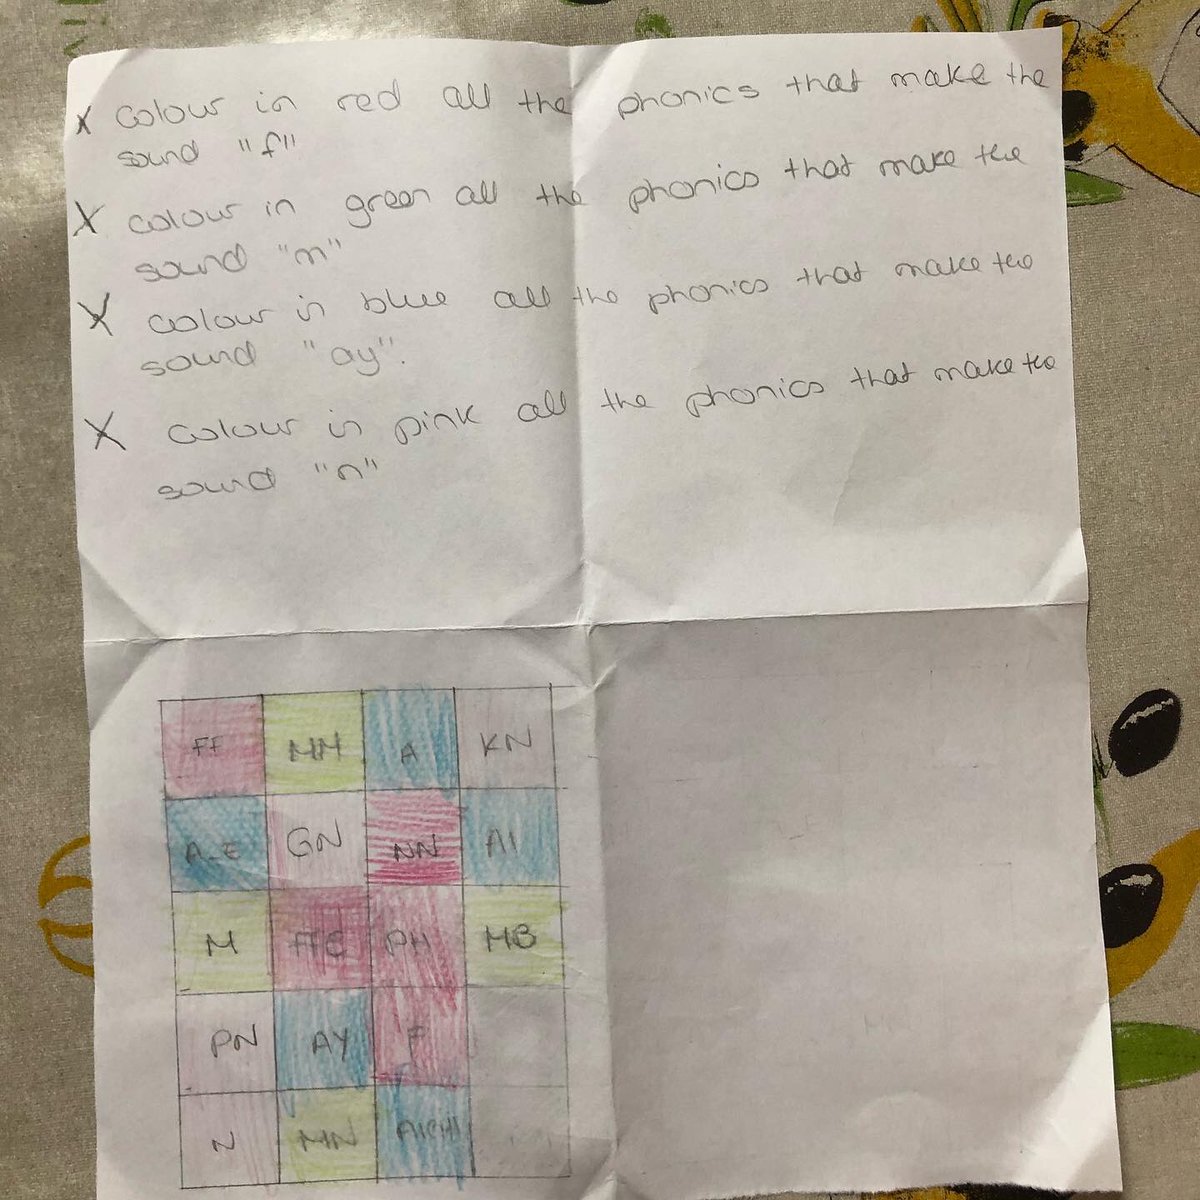 x colour in red all the phonics that make the
sound "f"
x colour in green all the phonics that make the
sound "m"
x colour in blue all the phonics that make the
sound "ay".
x colour in pink all the phonics that make the
sound "n"
FF MM A KN
A-E GN NN AI
M FFE PH MB
PN AY F
N MN